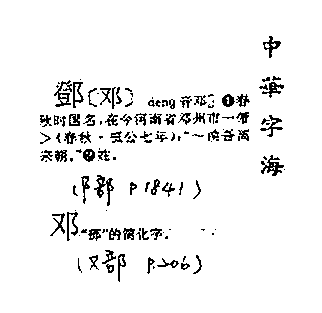 中華字海
鄧〔邓〕 deng 音邓 ❶春
秋时国名,在今河南省邓州市一带
>《春秋·桓公七年》:“~侯吾离
来朝。”❷姓。
(阝部 P1841)
邓 “鄧”的简化字。
(又部 P.206)